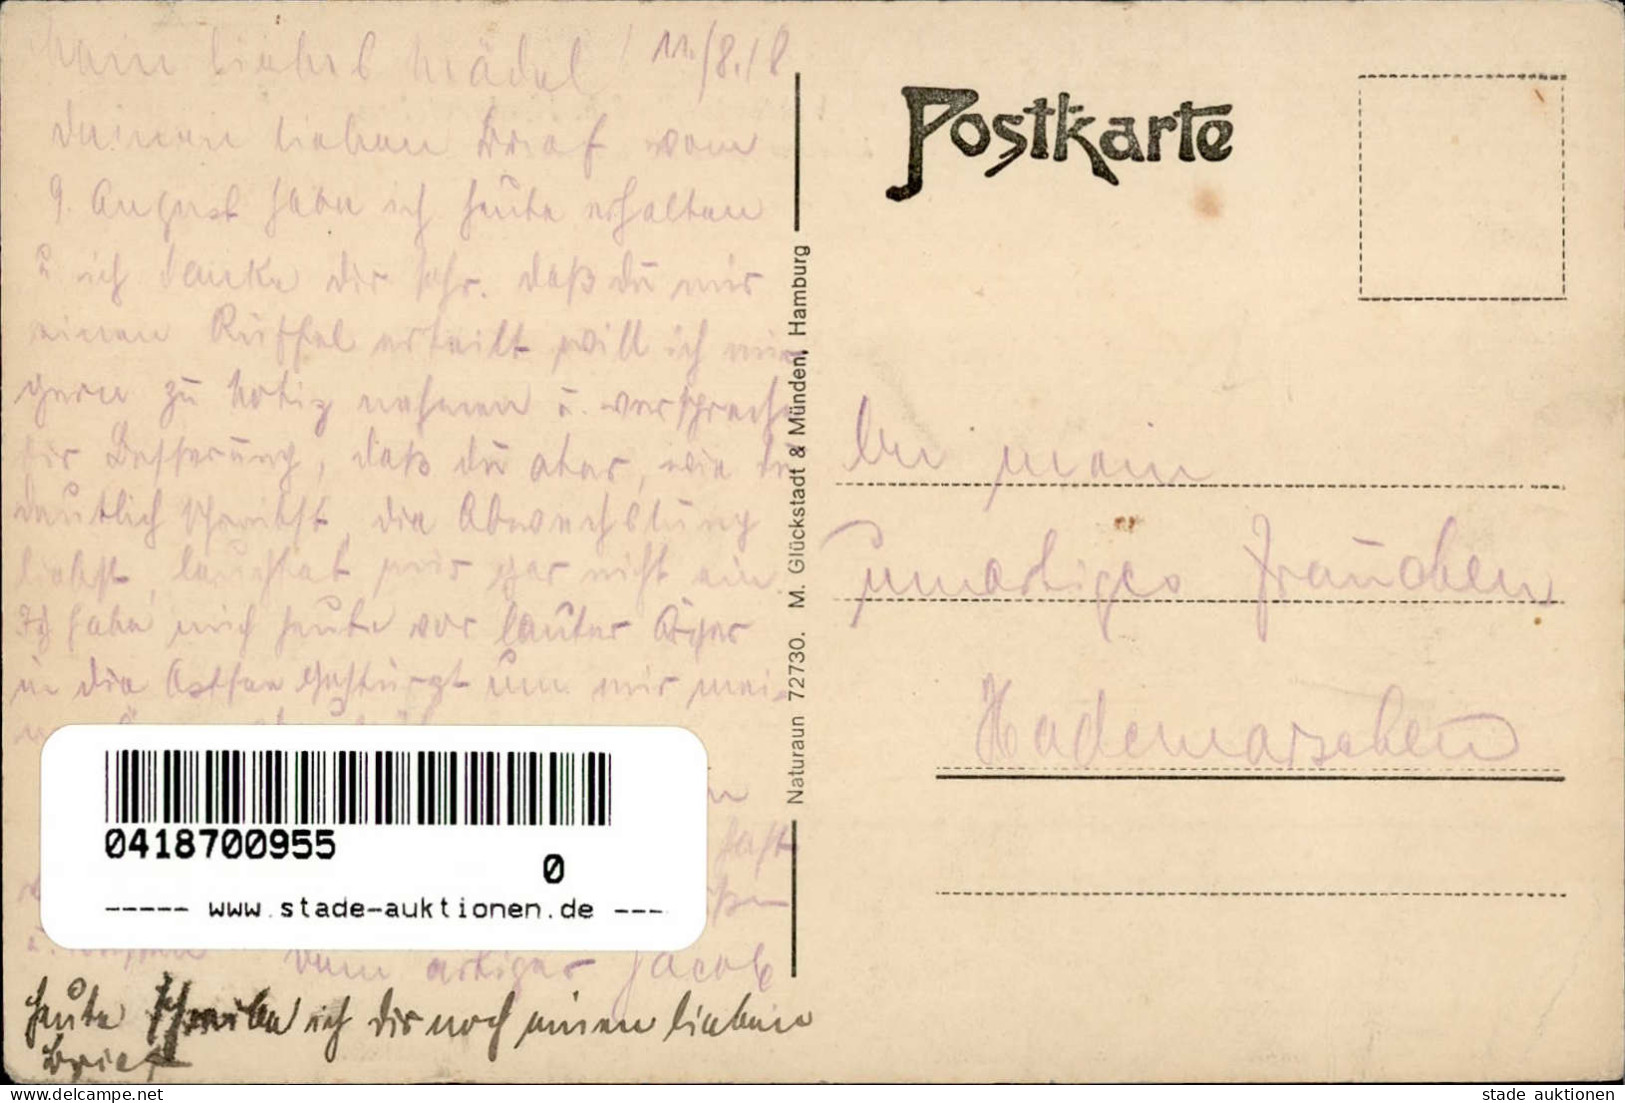 Mein liebes Mädel! 11./8.18
Deinen lieben Brief vom
9. August habe ich heute erhalten
u. ich danke dir sehr. daß du mir
einen Rüffel erteilt will ich mir
gern zu Notiz nehmen u. verspreche
dir Besserung, daß du aber, wie du
deutlich schreibst, die Abwechslung
liebst, leuchtet mir gar nicht ein
Ich habe mich heute vor lauter Ärger
in die Ostsee gestürzt um mir mei-
fast
u.
Dein artiger Jacob
heute schreibe ich dir noch einen lieben
Brief
Postkarte
Naturaun 72730. M. Glückstadt & Münden, Hamburg
An mein
unartiges Frauchen
Hademarschen
0418700955
0
----- www.stade-auktionen.de ---
stade auktionen